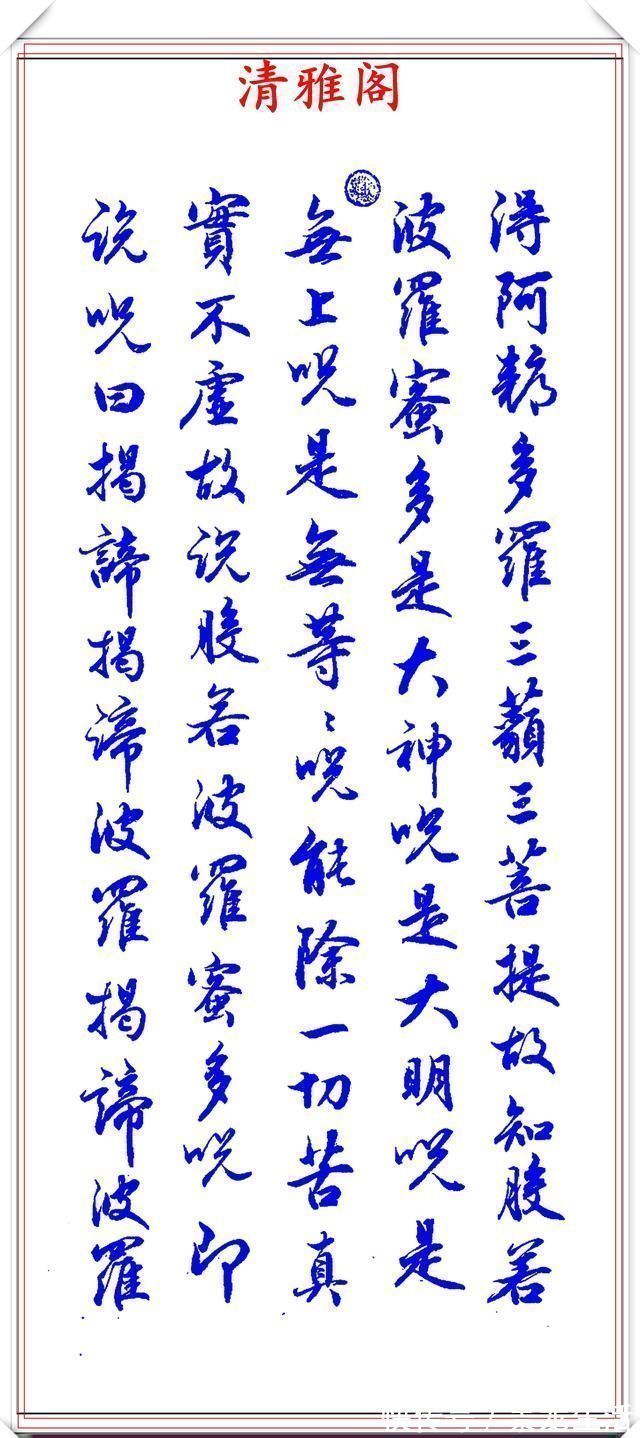 清雅阁
得阿耨多羅三藐三菩提故知般若
波羅蜜多是大神呪是大明呪是
無上呪是無等〻呪能除一切苦真
實不虛故说般若波羅蜜多呪即
说呪曰揭諦揭諦波羅揭諦波羅